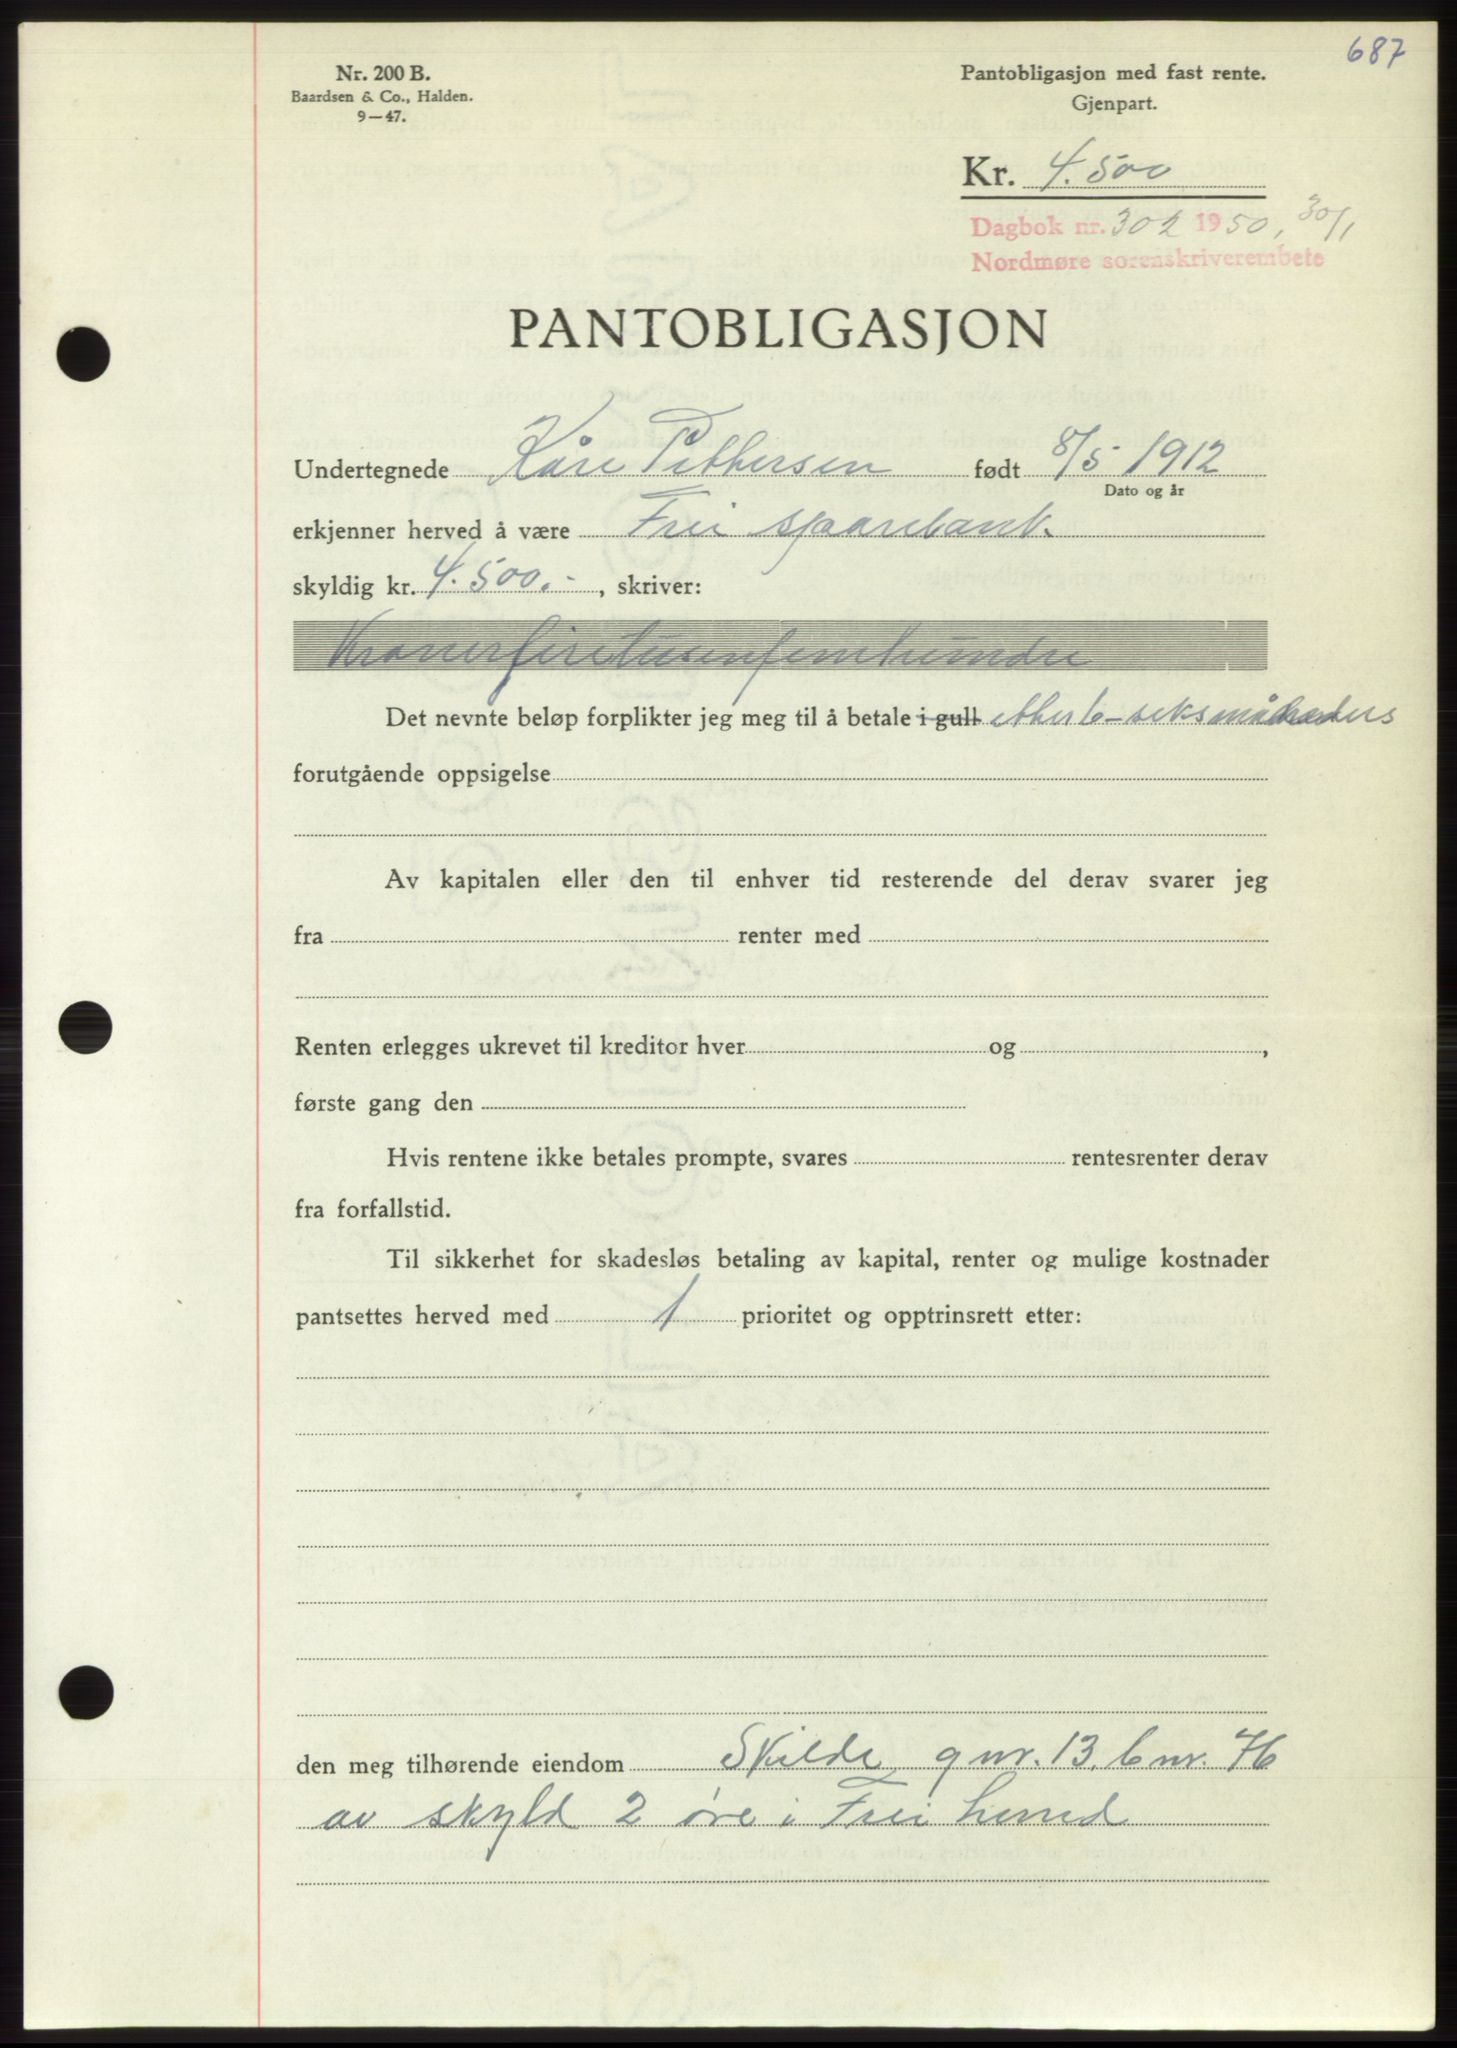 687
Nr. 200 B.
Baardsen & Co., Halden.
9—47.
Pantobligasjon med fast rente.
Gjenpart.
Kr. 4.500
Dagbok nr. 302 1950, 30/1
Nordmøre sorenskriverembete
PANTOBLIGASJON
Undertegnede Kåre Pettersen født 8/5 1912
Dato og år
erkjenner herved å være Frei sparebank
skyldig kr. 4.500.-, skriver:
Kronerfiretusenfemhundre
Det nevnte beløp forplikter jeg meg til å betale i gull etter 6-seksmåneders
forutgående oppsigelse
Av kapitalen eller den til enhver tid resterende del derav svarer jeg
fra renter med
Renten erlegges ukrevet til kreditor hver og ,
første gang den
Hvis rentene ikke betales prompte, svares rentesrenter derav
fra forfallstid.
Til sikkerhet for skadesløs betaling av kapital, renter og mulige kostnader
pantsettes herved med 1 prioritet og opptrinsrett etter:
den meg tilhørende eiendom Skilde gnr. 13, bnr. 76
av skyld 2 øre i Frei herred